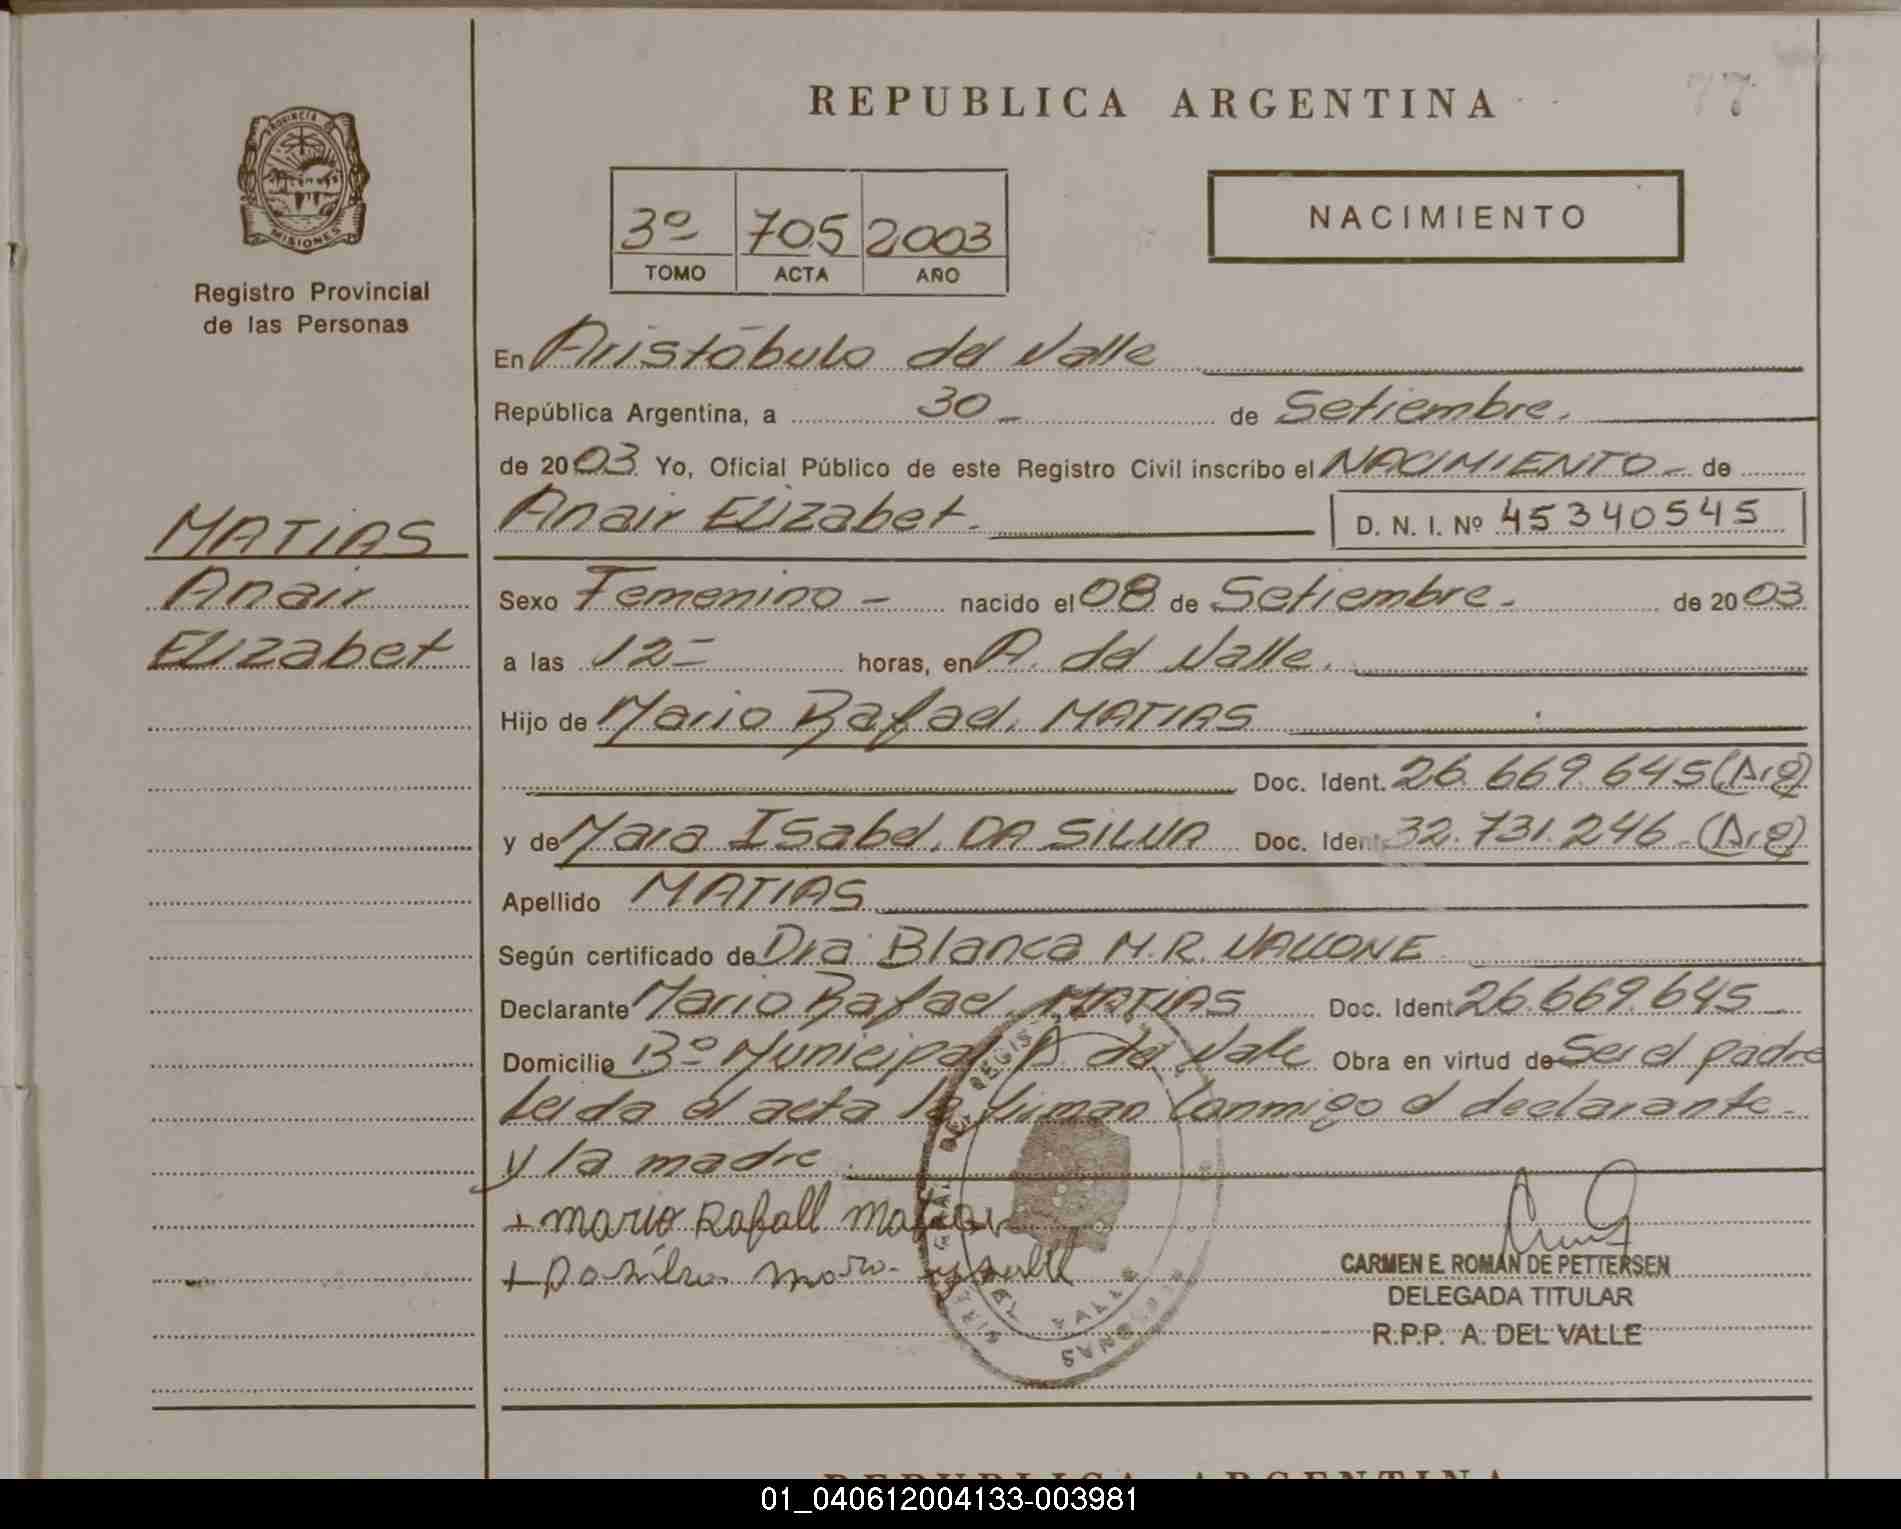 REPUBLICA ARGENTINA
77
PROVINCIA D
MISIONES
Registro Provincial
de las Personas
3º 705 2003
TOMO ACTA AÑO
NACIMIENTO
En Aristóbulo del Valle
República Argentina, a 30 de Setiembre.
de 2003 Yo, Oficial Público de este Registro Civil inscribo el NACIMIENTO de
Anair Elizabet. D. N. I. Nº 45340545
MATIAS
Anair
Elizabet
Sexo Femenino - nacido el 08 de Setiembre. de 2003
a las 12- horas, en A. del Valle.
Hijo de Mario Rafael. MATIAS
Doc. Ident. 26.669.645 (Arg)
y de Mara Isabel. DA SILVA Doc. Ident. 32.731.246 - (Arg)
Apellido MATIAS
Según certificado de Dra Blanca M.R. VALLONE
Declarante Mario Rafael MATIAS Doc. Ident 26.669.645
Domicilio Bº Municipal A. del Valle Obra en virtud de Ser el padre
Leida el acta la firman conmigo el declarante
y la madre.
+ Mario Rafall Matias
+ Da silva mara ysabell
CARMEN E. ROMAN DE PETTERSEN
DELEGADA TITULAR
R.P.P. A. DEL VALLE
REPUBLICA ARGENTINA
01_040612004133-003981